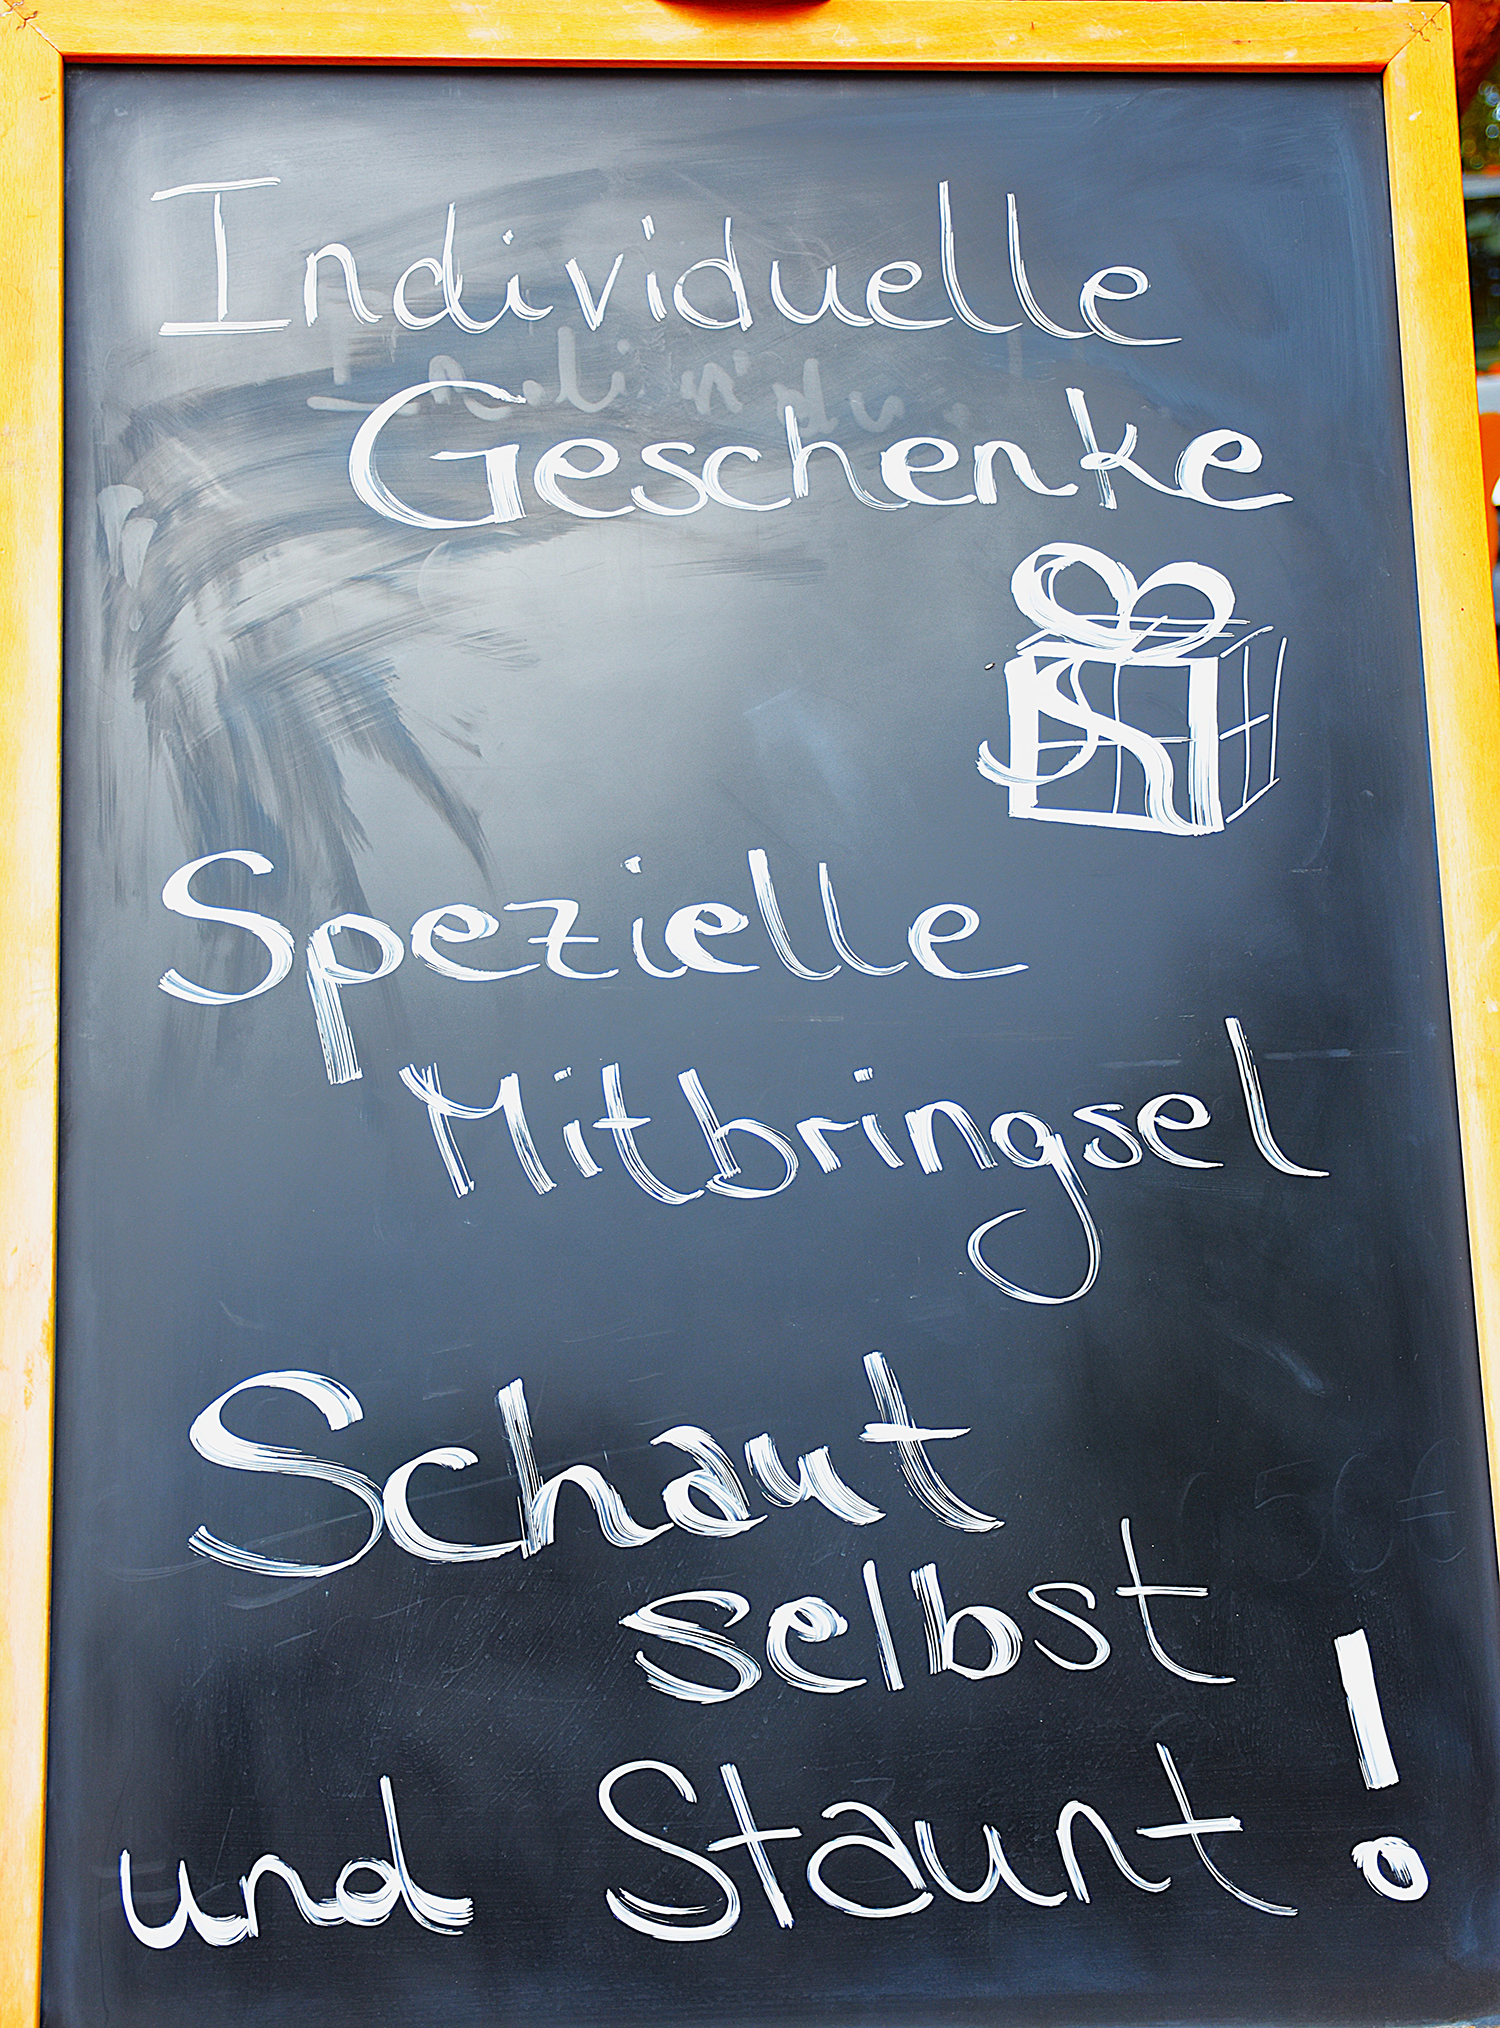 Individuelle
Geschenke
Spezielle
Mitbringsel
Schaut
selbst
und Staunt!